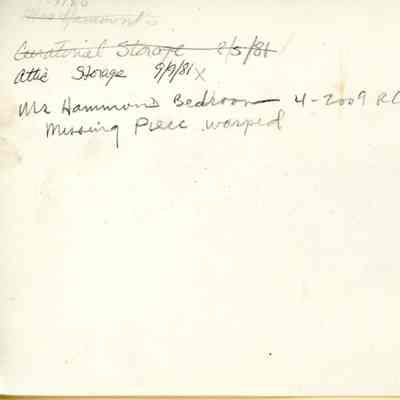 Mrs Hammond's
Curatorial Storage 2/5/81
Attic Storage 9/9/81 X
Mr Hammond Bedroom 4-2009 RC
Missing Piece warped